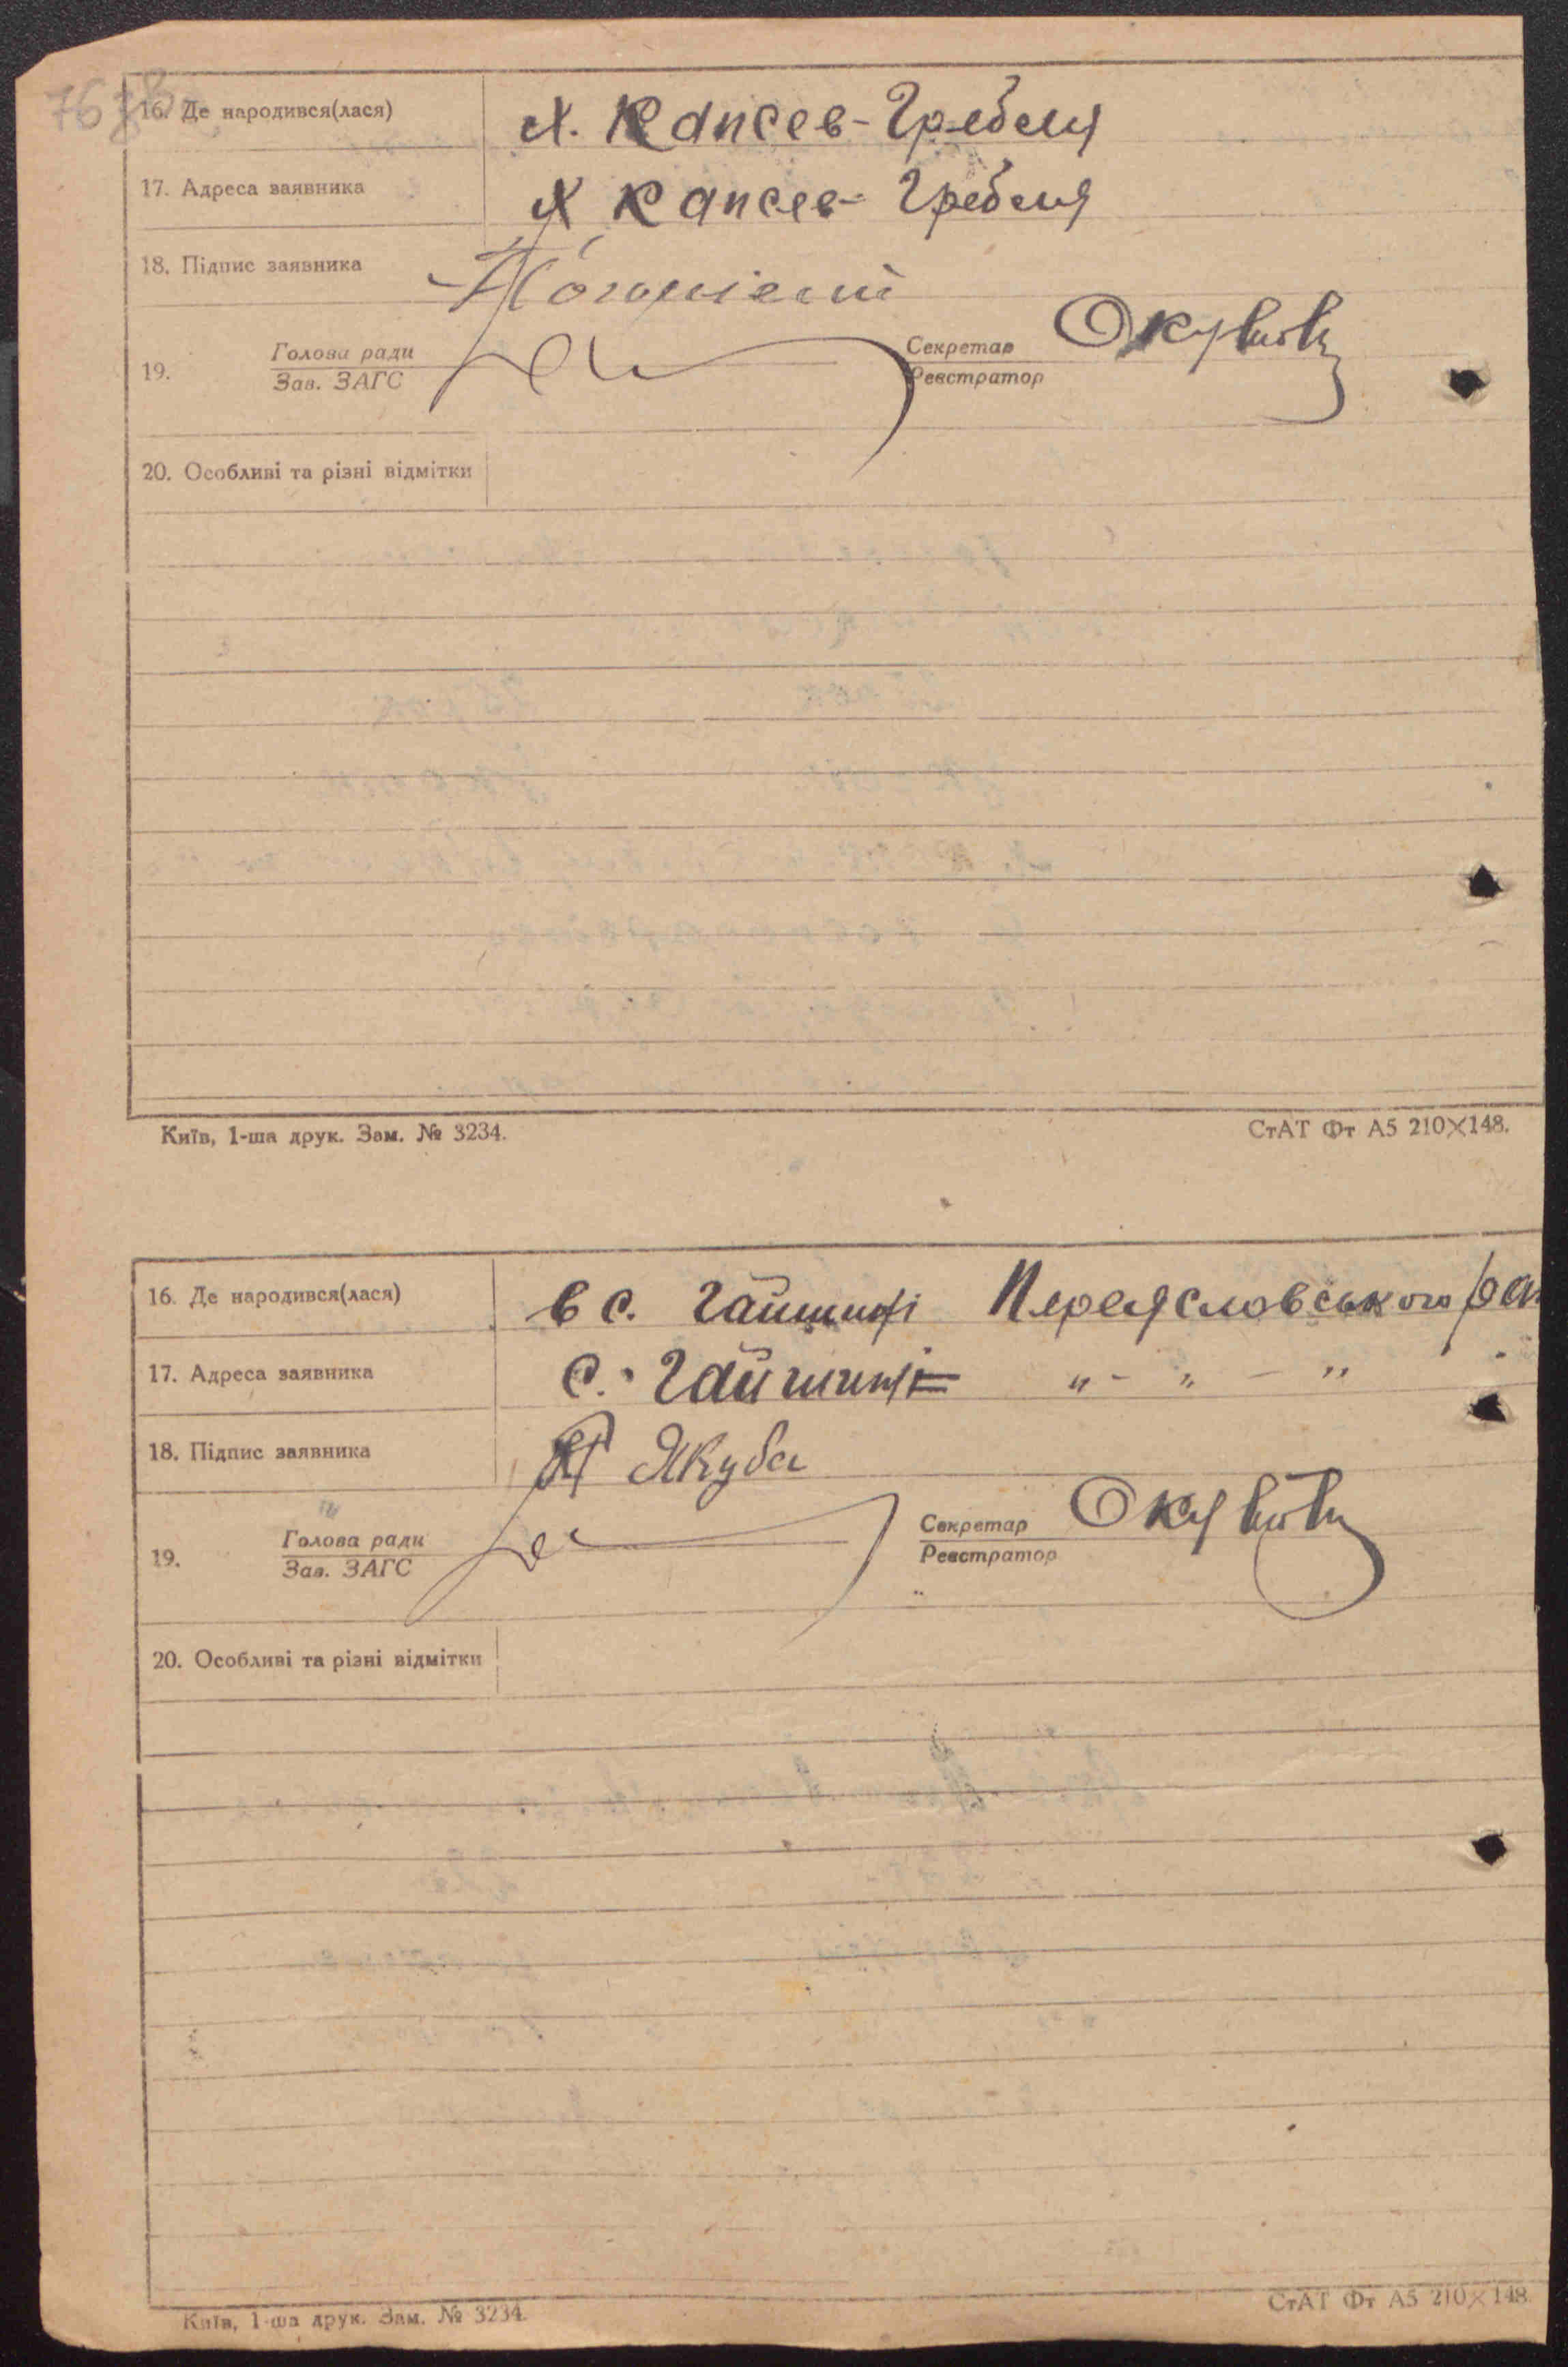 76
16. Де народився(лася) х. Капсев-Гребля
17. Адреса заявника х Капсев-Гребля
18. Підпис заявника
19. Голова ради
Зав. ЗАГС
Секретар
Реєстратор
20. Особливі та різні відмітки
Київ, 1-ша друк. Зам. № 3234. СтАТ Фт А5 210×148.
16. Де народився(лася) в с. Гайшині Переясловського рай
17. Адреса заявника с. Гайшині " - " - "
18. Підпис заявника Якуба
19. Голова ради
Зав. ЗАГС
Секретар
Реєстратор
20. Особливі та різні відмітки
Київ, 1-ша друк. Зам. № 3234. СтАТ Фт А5 210×148.